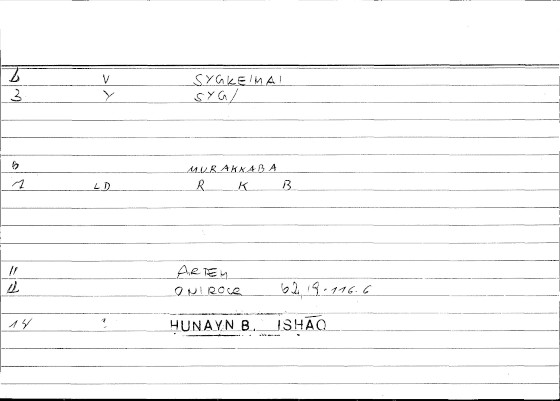 V SYGKEIMAI
3 Y SYG/
MURAKKABA
LD R K B
11 ARTEM
ONIROCR 62,19-116.6
14 HUNAYN B. ISHAQ